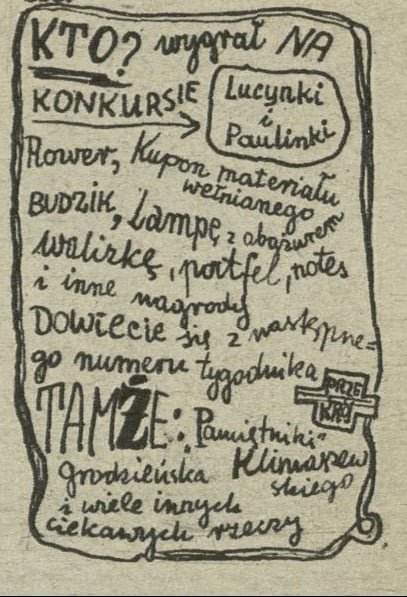 KTO? wygrał NA
KONKURSIE
Lucynki
i
Paulinki
Rower, Kupon materiału
wełnianego
BUDZIK, Lampę z abażurem
walizkę, portfel, notes
i inne nagrody
DOWIECIE się z następne=
go numeru tygodnika
PRZE
KRÓJ
TAMŻE: „Pamiętniki”
Grodzieńska Klimaszew
skiego
i wiele innych
ciekawych rzeczy